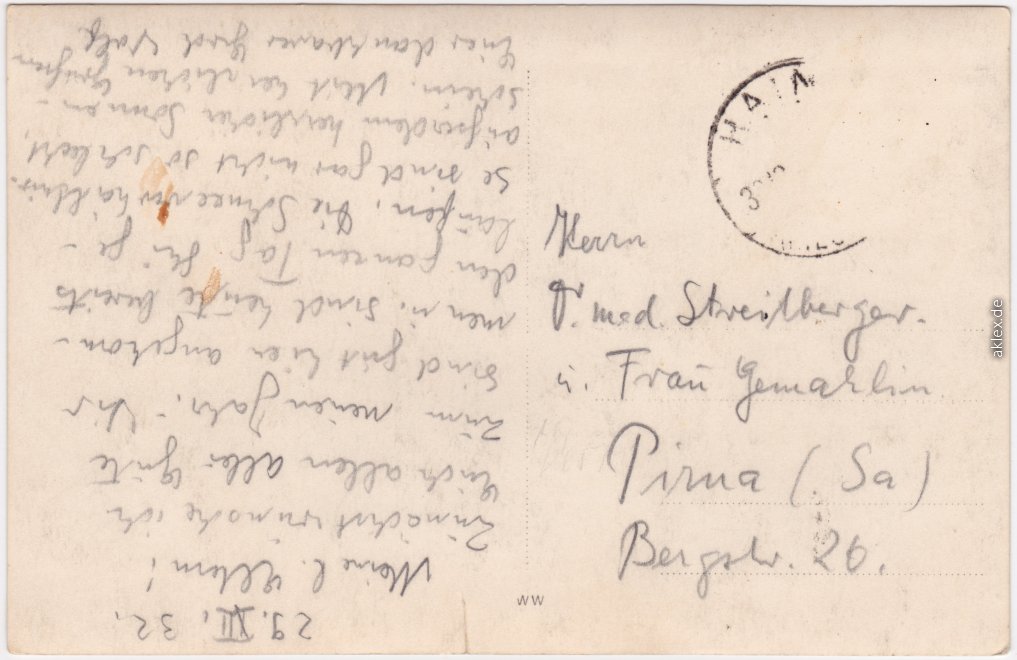 29. XII. 32.
Meine l. Eltern!
Zunächst wünsche ich
Euch allen alles Gute
zum neuen Jahr. - Wir
sind gut hier angekom-
men u. sind heute bereits
den ganzen Tag Ski ge-
laufen. Die Schneeverhältnis-
se sind gar nicht so schlecht,
außerdem herrlicher Sonnen-
schein. Mit herzlichen Grüßen
Euer dankbarer
Herrn
Dr. med. Streilberger.
u. Frau Gemahlin
Pirna (Sa)
Bergstr. 26.
WW
HAIN
aklex.de